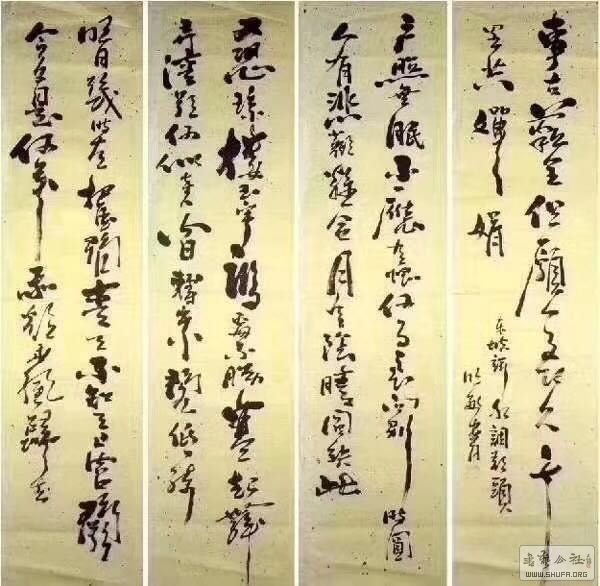 明月幾時有把酒問青天不知天上宮闕
今夕是何年我欲乘風歸去
又恐瓊樓玉宇高處不勝寒起舞
弄清影何似在人間轉朱閣低綺
戶照無眠不應有恨何事長向別時圓
人有悲歡離合月有陰晴圓缺此
事古難全但願人長久千
里共嬋娟
東坡詞水調歌頭
書法公社
WWW.SHUFA.ORG